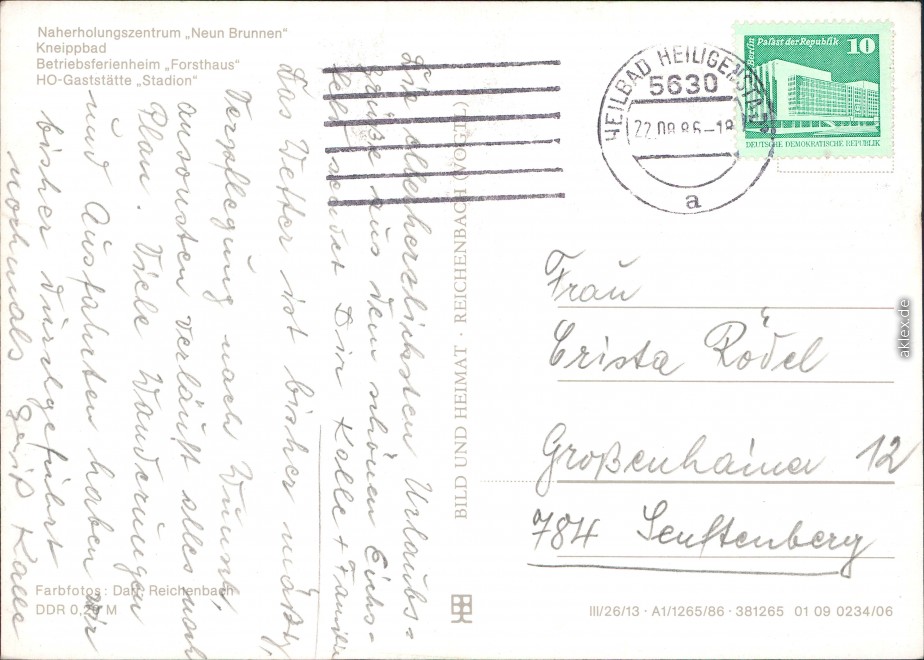 Naherholungszentrum „Neun Brunnen"
Kneippbad
Betriebsferienheim „Forsthaus"
HO-Gaststätte „Stadion"
Die allerherzlichsten Urlaubs-
grüße aus dem schönen Eichs-
feld sendet Dir Kalle + Familie
Das Wetter ist bisher mäßig,
Verpflegung nach Wunsch,
ansonsten verläuft alles nach
Plan. Viele Wanderungen
und Ausfahrten haben wir
bisher durchgeführt
nochmals Gruß Kalle
Farbfotos: Darr, Reichenbach
DDR 0,25 M
BILD UND HEIMAT · REICHENBACH (VOGTL)
HEILBAD HEILIGENSTADT
5630
22.08.86-18
a
Berlin Palast der Republik 10
DEUTSCHE DEMOKRATISCHE REPUBLIK
Frau
Crista Rödel
Großenhainer 12
784 Senftenberg
III/26/13 · A1/1265/86 · 381265 01 09 0234/06
aklex.de